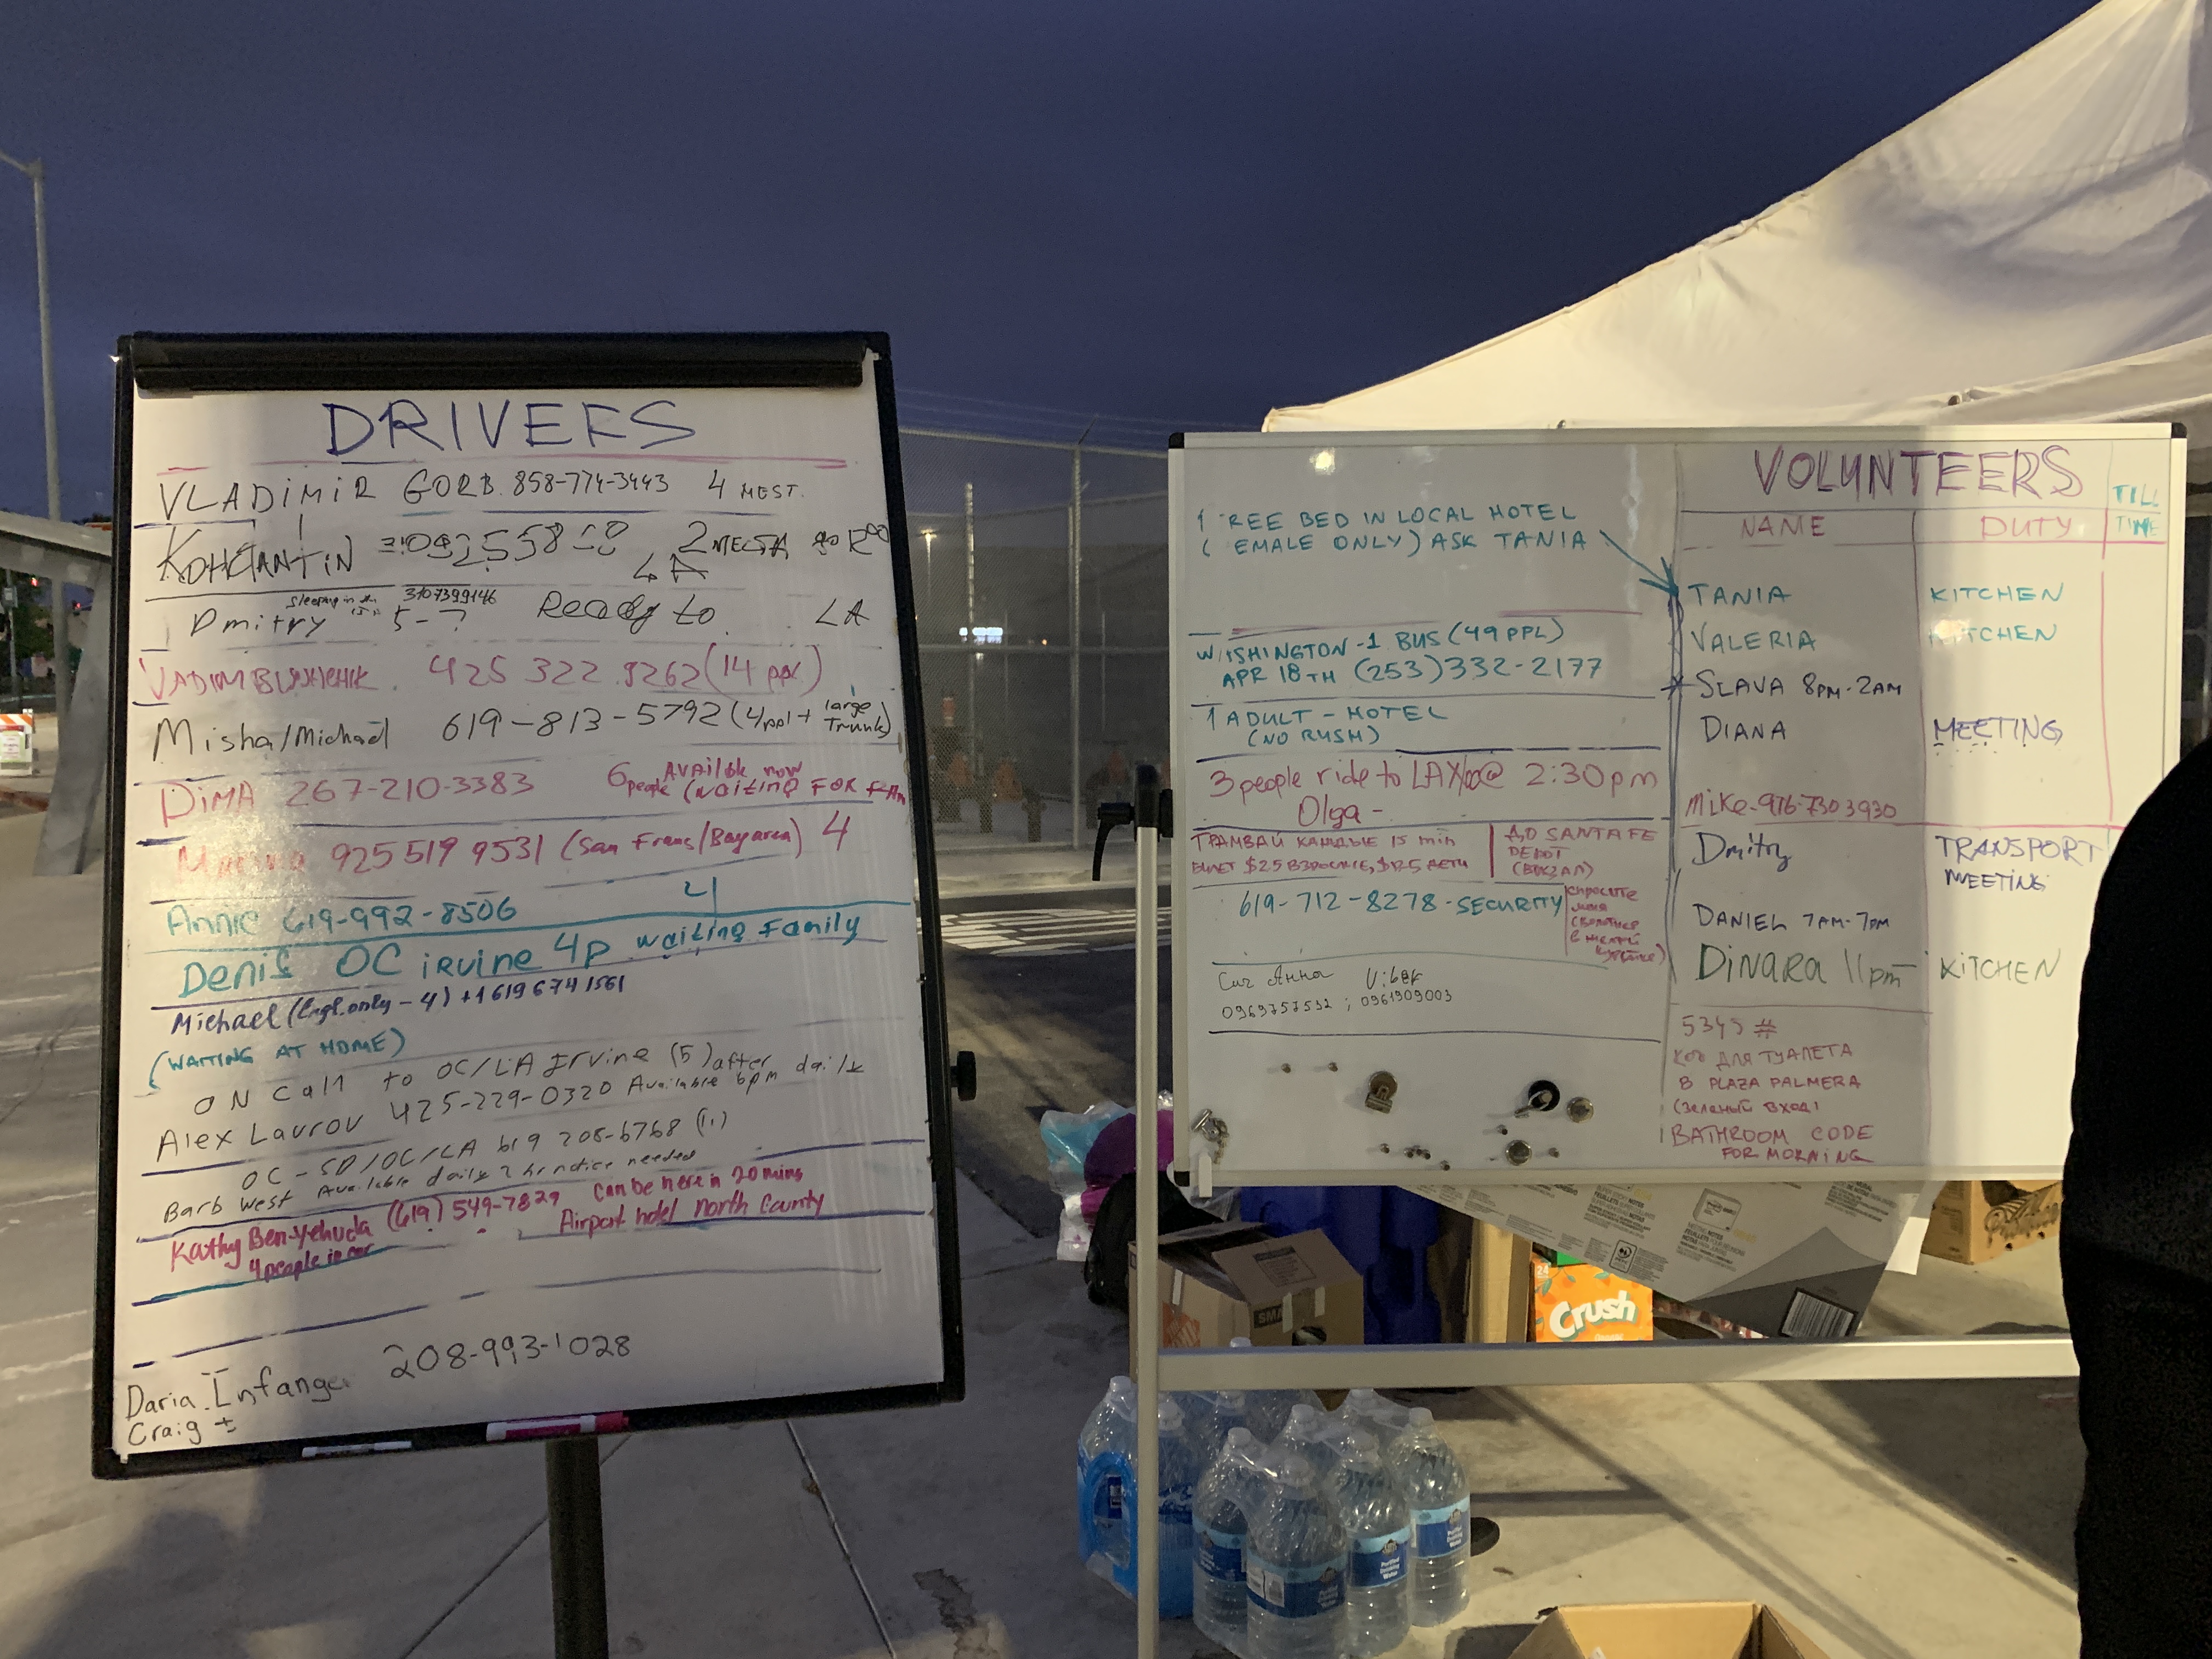 DRIVERS
VLADIMIR GORB. 858-774-3443 4 MEST.
KOHCTANTIN 2 MECTA
LA
Sleeping in the 3107399146
Dmitry 5-? Ready to LA
VADIM 425 322 9262 (14 ppl)
Misha/Michael 619-813-5792 (4ppl + large Trunk)
DIMA 267-210-3383 6 people Available now (waiting FOR FAm
925 519 9531 (San Frans/Bay area) 4
Annie 619-992-8506 4
Denis OC irvine 4p waiting Family
Michael (Engl. only - 4) +1 619 674 1561
(WAITING AT HOME)
ON Call to OC/LA Irvine (5) after
Alex Laurov 425-229-0320 Available 6pm daily
OC - SD/OC/LA 619 208-6768
Barb West Available daily 2 hr notice needed
Kathy Ben-Yehuda (619) 549-7829 Can be here in 20 mins
4 people in car Airport hotel North County
208-993-1028
Daria
Craig
1 REE BED IN LOCAL HOTEL
( EMALE ONLY) ASK TANIA
WASHINGTON - 1 BUS (49 PPL)
APR 18TH (253) 332-2177
1 ADULT - HOTEL
(NO RUSH)
3 people ride to LAX @ 2:30pm
Olga -
ТРАМВАЙ КАЖДЫЕ 15 min
БИЛЕТ $2.5 ВЗРОСЛЫЕ, $1.25 ДЕТИ
ДО SANTA FE
DEPOT
(ВОКЗАЛ)
619-712-8278 - SECURITY
спросите
Анна Viber
0969757532 ; 0961909003
VOLUNTEERS
NAME DUTY TILL TIME
TANIA KITCHEN
VALERIA KITCHEN
SLAVA 8PM-2AM
DIANA MEETING
MIKE-916-730 3930
Dmitry TRANSPORT
MEETING
DANIEL 7AM-7PM
DINARA 11pm KITCHEN
5345 #
код ДЛЯ ТУАЛЕТА
В PLAZA PALMERA
(зеленый вход)
BATHROOM CODE
FOR MORNING
24
Crush